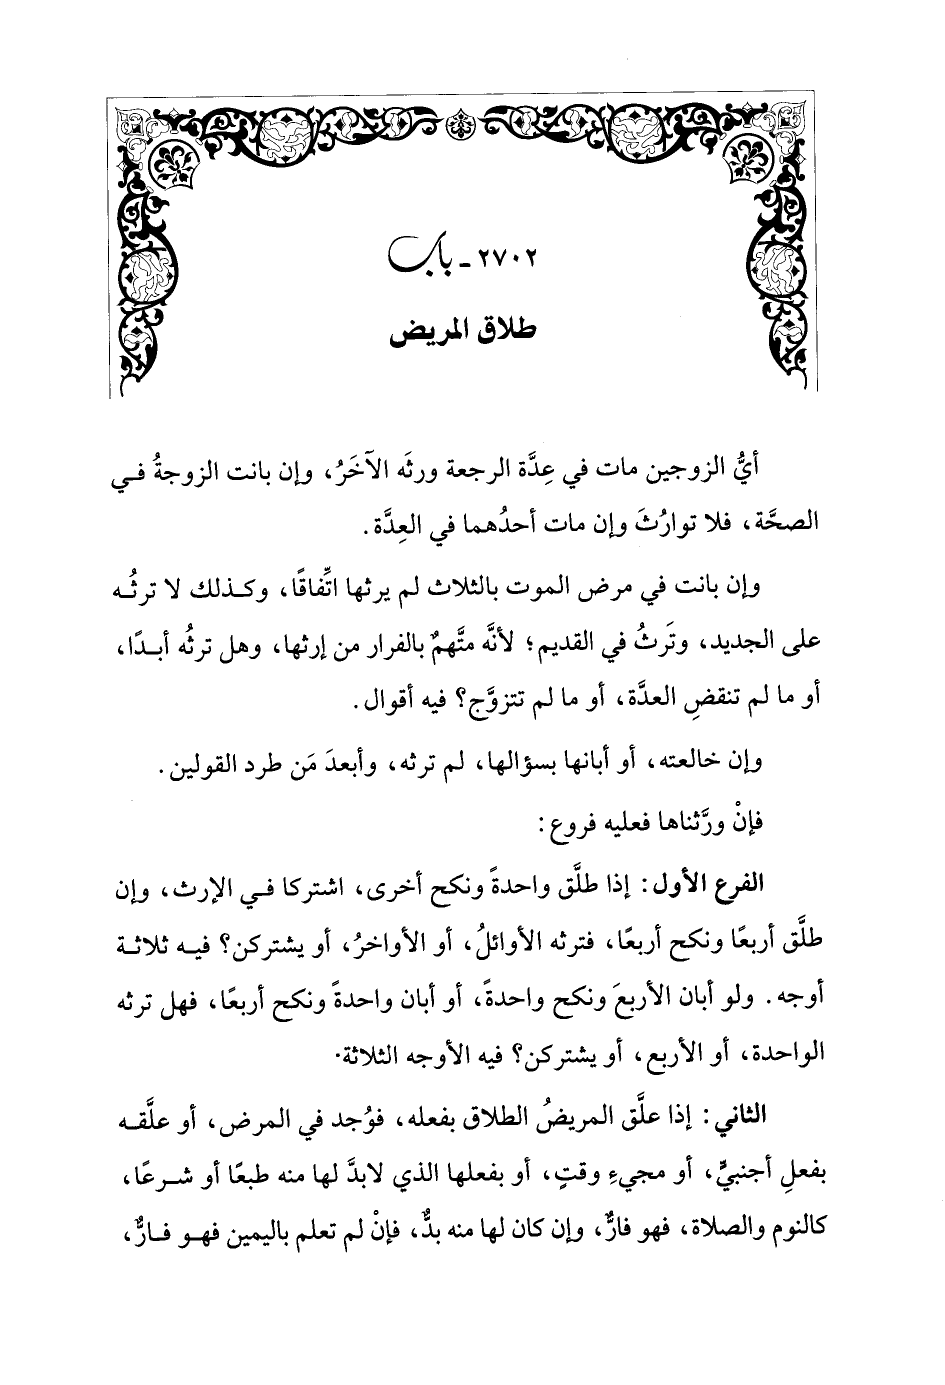 ٢٧٠٢ - باب
طلاق المريض
أيُّ الزوجين مات في عِدَّة الرجعة ورثَه الآخَرُ، وإن بانت الزوجةُ في
الصحَّة، فلا توارُثَ وإن مات أحدُهما في العِدَّة.
وإن بانت في مرض الموت بالثلاث لم يرثها اتِّفاقًا، وكذلك لا ترثُه
على الجديد، وتَرثُ في القديم؛ لأنَّه متَّهمٌ بالفرار من إرثها، وهل ترثُه أبدًا،
أو ما لم تنقضِ العدَّة، أو ما لم تتزوَّج؟ فيه أقوال.
وإن خالعته، أو أبانها بسؤالها، لم ترثه، وأبعدَ مَن طرد القولين.
فإنْ ورَّثناها فعليه فروع:
الفرع الأول: إذا طلَّق واحدةً ونكح أخرى، اشتركا في الإرث، وإن
طلَّق أربعًا ونكح أربعًا، فترثه الأوائلُ، أو الأواخرُ، أو يشتركن؟ فيه ثلاثة
أوجه. ولو أبان الأربعَ ونكح واحدةً، أو أبان واحدةً ونكح أربعًا، فهل ترثه
الواحدة، أو الأربع، أو يشتركن؟ فيه الأوجه الثلاثة.
الثاني: إذا علَّق المريضُ الطلاق بفعله، فوُجد في المرض، أو علَّقه
بفعلِ أجنبيٍّ، أو مجيءِ وقتٍ، أو بفعلها الذي لابدَّ لها منه طبعًا أو شرعًا،
كالنوم والصلاة، فهو فارٌّ، وإن كان لها منه بدٌّ، فإنْ لم تعلم باليمين فهو فارٌّ،